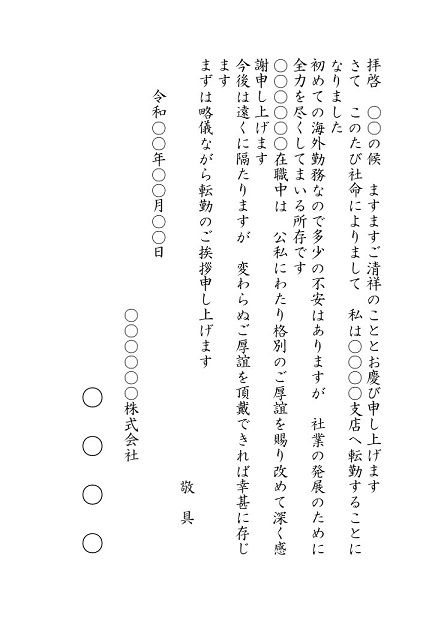 拝啓　〇〇の候　ますますご清祥のこととお慶び申し上げます
さて　このたび社命によりまして　私は〇〇〇〇支店へ転勤することに
なりました
初めての海外勤務なので多少の不安はありますが　社業の発展のために
全力を尽くしてまいる所存です
〇〇〇〇〇在職中は　公私にわたり格別のご厚誼を賜り改めて深く感
謝申し上げます
今後は遠くに隔たりますが　変わらぬご厚誼を頂戴できれば幸甚に存じ
ます
まずは略儀ながら転勤のご挨拶申し上げます
敬　具
令和〇〇年〇〇月〇〇日
〇〇〇〇〇〇株式会社
〇　〇　〇　〇